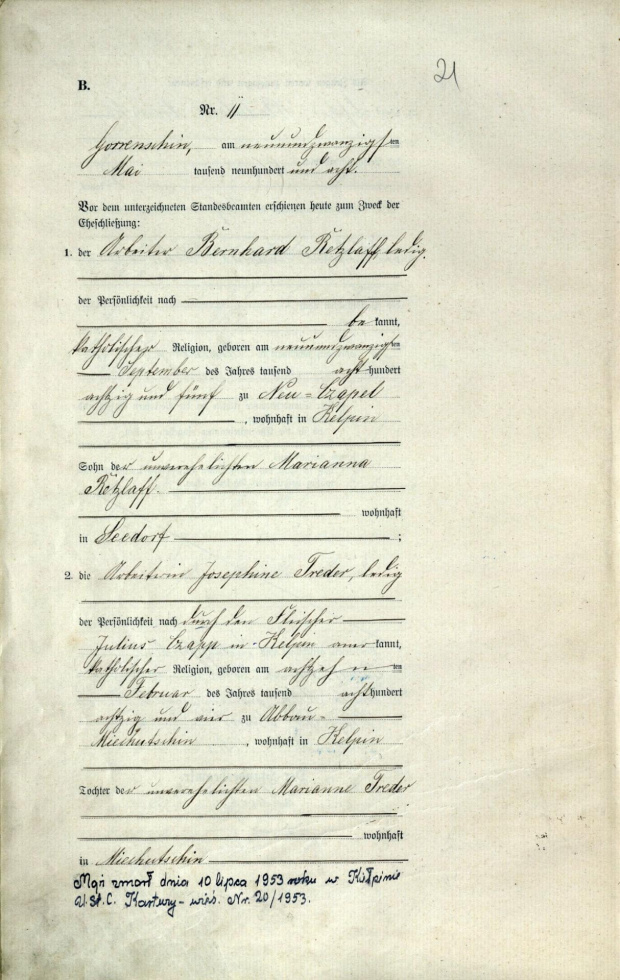 21
B.
Nr. 11
Gorrenschin, am neunundzwanzigsten
Mai tausend neunhundert und acht.
Vor dem unterzeichneten Standesbeamten erschienen heute zum Zweck der
Eheschließung:
1. der Arbeiter Bernhard Retzlaff, ledig.
der Persönlichkeit nach
be kannt,
katholischer Religion, geboren am neunundzwanzigsten
September des Jahres tausend acht hundert
achtzig und fünf zu Neu=Czapel
, wohnhaft in Kelpin
Sohn der unverehelichten Marianna
Retzlaff.
wohnhaft
in Seedorf ;
2. die Arbeiterin Josephine Treder, ledig
der Persönlichkeit nach durch den Fleischer
Julius Czapp in Kelpin aner kannt,
katholischer Religion, geboren am achtzehnten
Februar des Jahres tausend acht hundert
achtzig und vier zu Abbau=
Miechutschin , wohnhaft in Kelpin
Tochter der unverehelichten Marianne Treder
wohnhaft
in Miechutschin
Mąż zmarł dnia 10 lipca 1953 roku w Kiełpinie
U.St.C. Kartuzy-wieś. Nr. 20/1953.